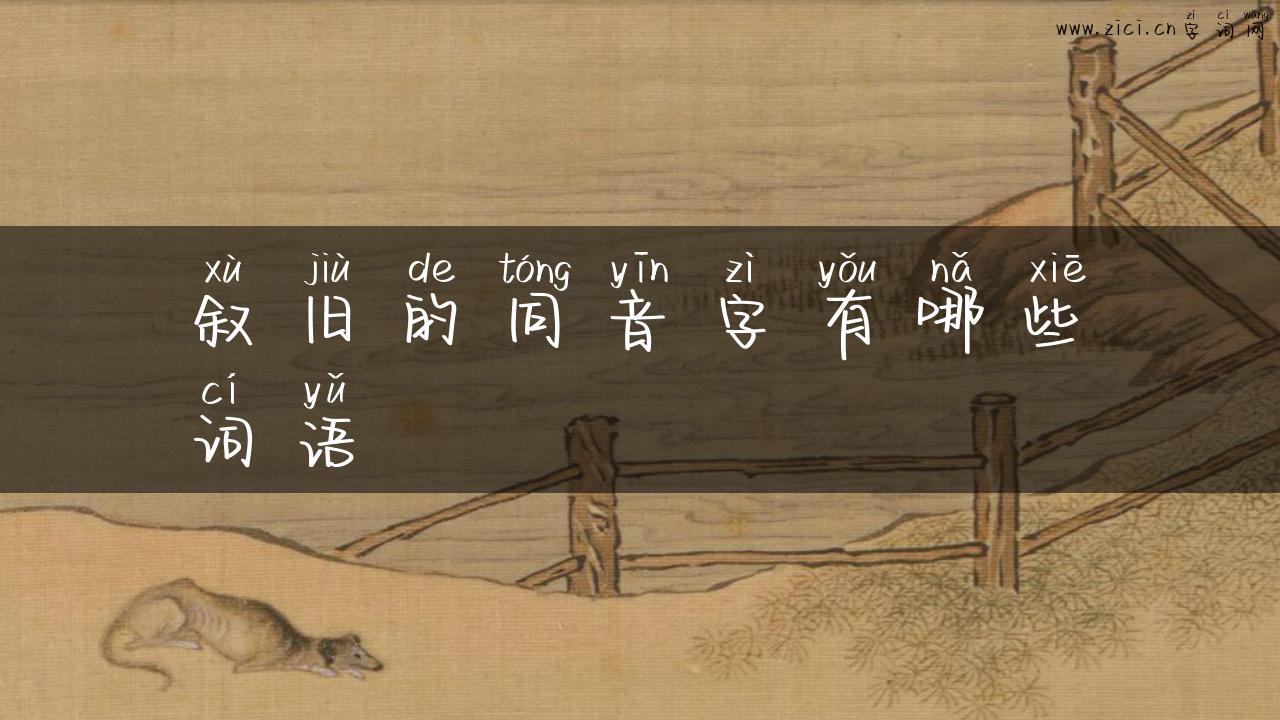 zì cí wǎng
www.zici.cn字词网
xù jiù de tóng yīn zì yǒu nǎ xiē
叙旧的同音字有哪些
cí yǔ
词语